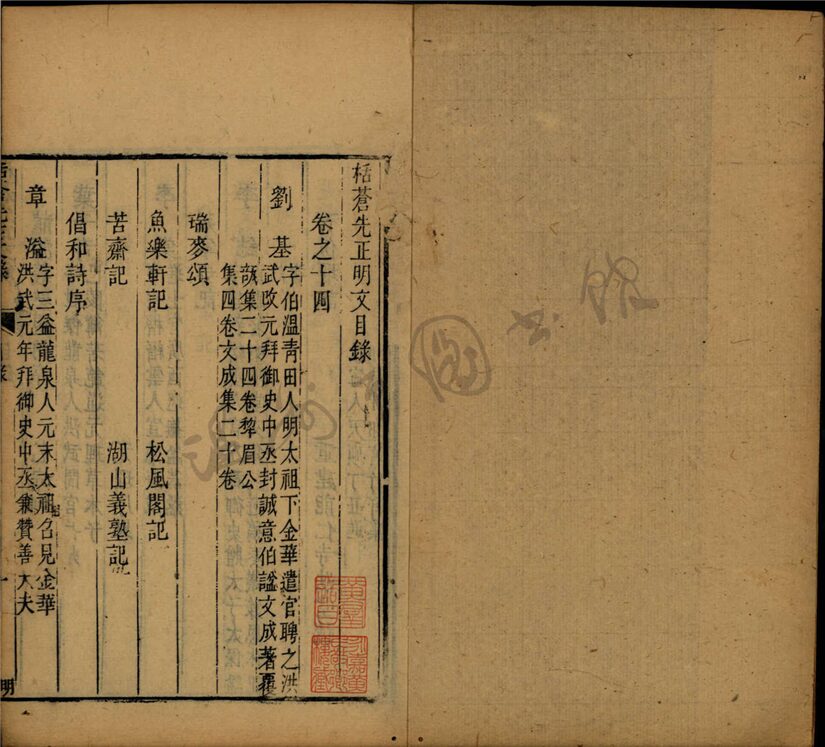 栝蒼先正明文目錄
卷之十四
劉基
字伯溫青田人明太祖下金華遣官聘之洪
武改元拜御史中丞封誠意伯諡文成著覆
瓿集二十四卷犂眉公
集四卷文成集二十卷
瑞麥頌
魚樂軒記 松風閣記
苦齋記 湖山義塾記
倡和詩序
章溢
字三益龍泉人元末太祖召見金華
洪武元年拜御史中丞兼贊善大夫
明